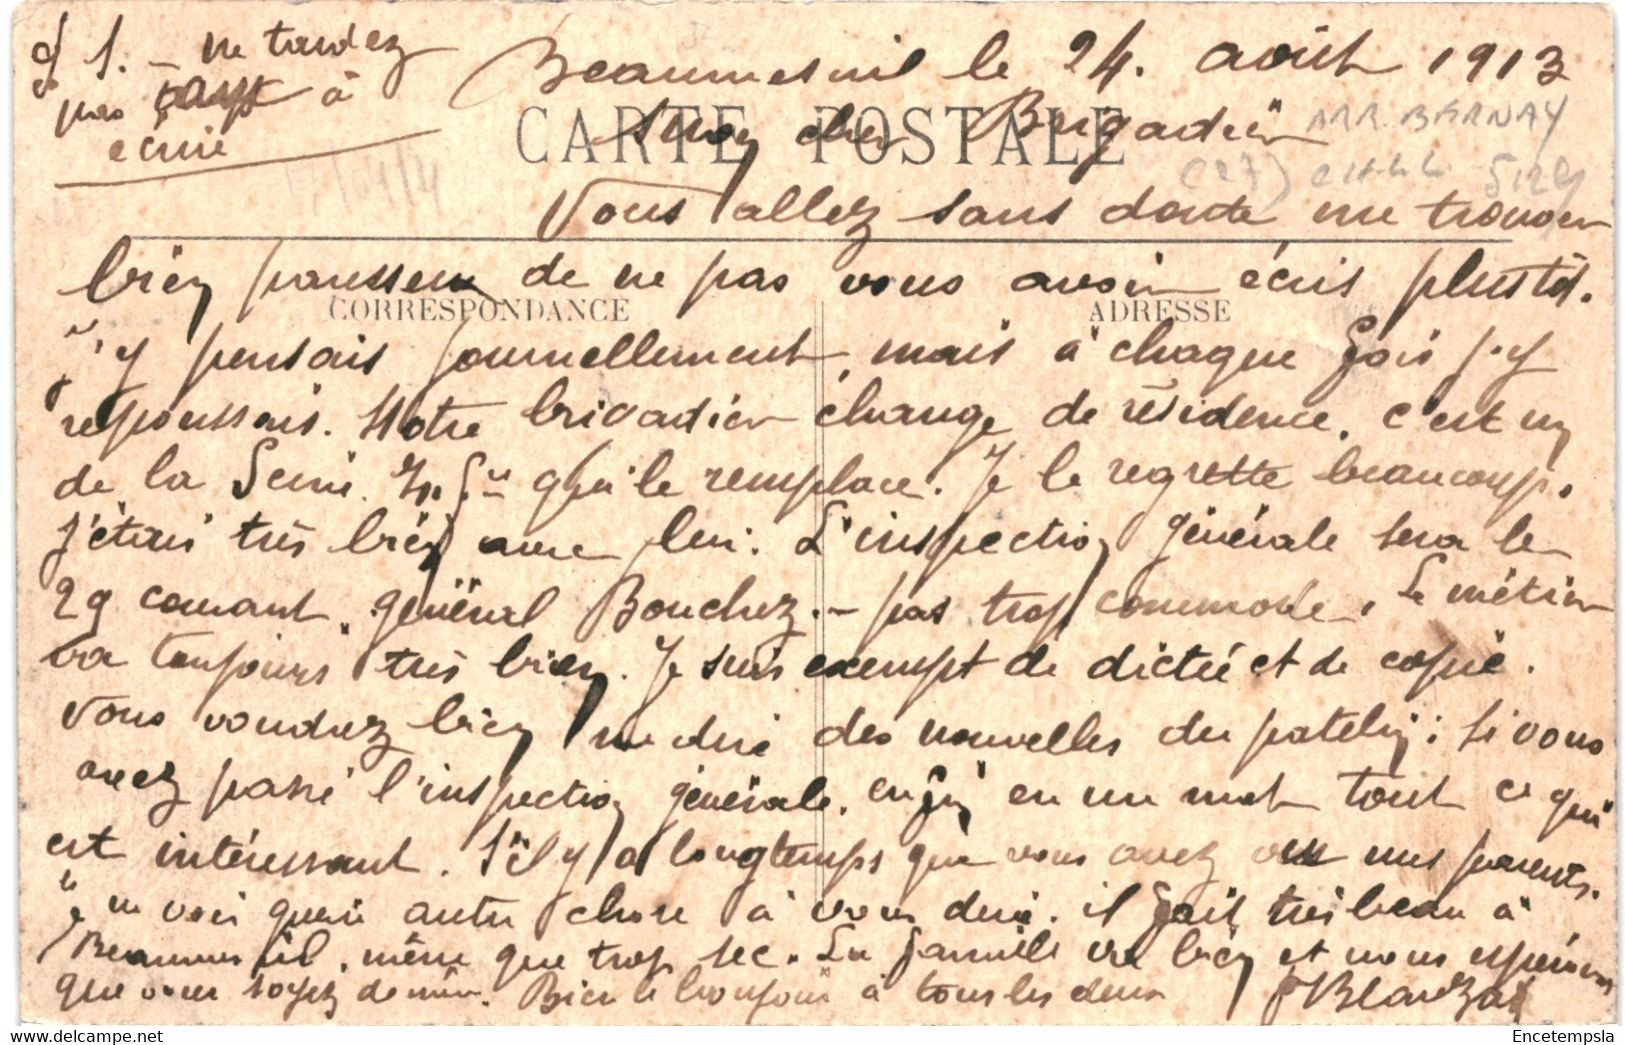 P.S. - ne tardez
pas à
écrire
Beaumesnil le 24 août 1913
CARTE POSTALE
Mon cher Brigadier
ARR. BERNAY
(27)
Vous allez sans doute me trouver
bien paresseux de ne pas vous avoir écris plustôt.
CORRESPONDANCE
ADRESSE
J'y pensais journellement, mais à chaque fois j'y
repoussais. Notre brigadier change de résidence, c'est un
de la Seine Inf.re qui le remplace. Je le regrette beaucoup.
j'étais très bien avec lui. L'inspection générale sera le
29 courant, général Bouchez. - pas trop commode. Le métier
va toujours très bien. Je suis exempt de dictée et de copie.
Vous voudrez bien me dire des nouvelles du patelin : si vous
avez passé l'inspection générale. enfin en un mot tout ce qui
est intéressant. S'il y a longtemps que vous avez vu mes parents.
Je ne vois guère autre chose à vous dire. il fait très beau à
Beaumesnil, même que trop sec. La famille va bien et nous espérons
que vous soyez de même. Bien le bonjour à tous les deux
delcampe.net
Encetempsla